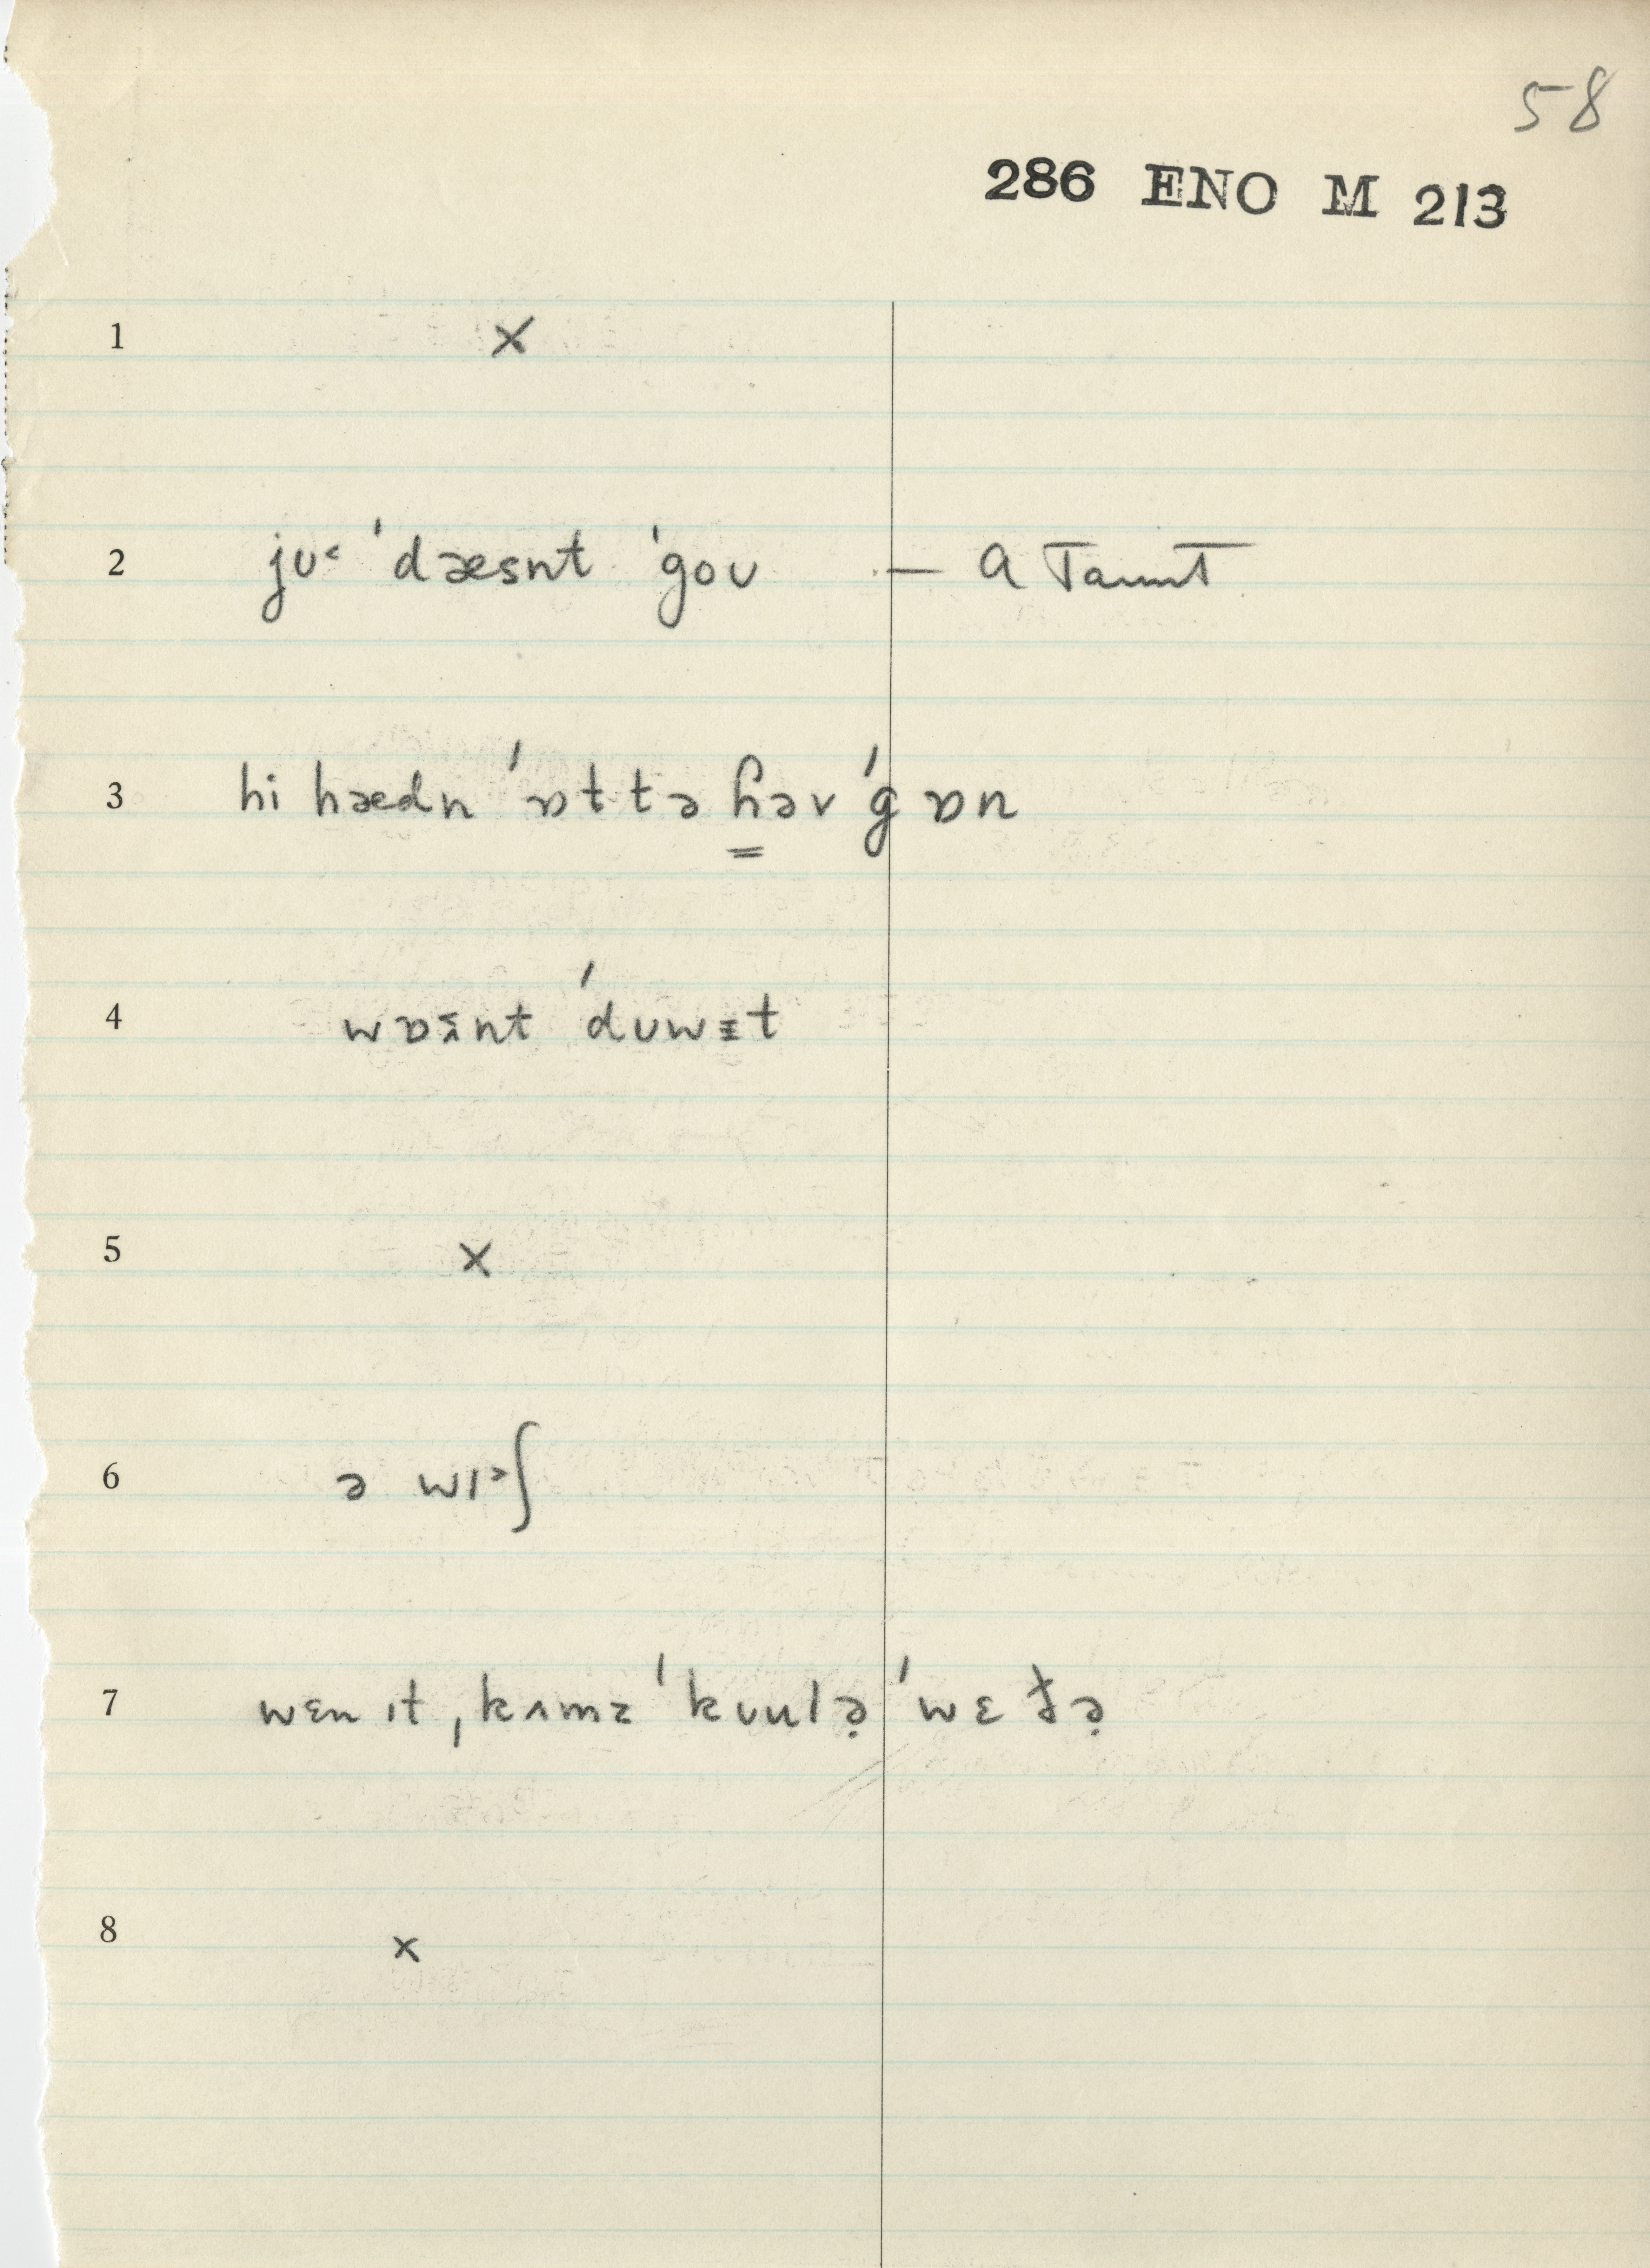 58
286 ENO M 213
1 x
2 jʊ˂ ˈdæsnt ˈgoʊ — a Taunt
3 hi hædn ˈɒttə ɦəv ˈgɒn
4 wɒz̃nt ˈdʊwɪt
5 x
6 ə wɪ˃ʃ
7 wɛn ɪt ˌkʌmz ˈkʊulə̣ ˈwɛt̬ə̣
8 x